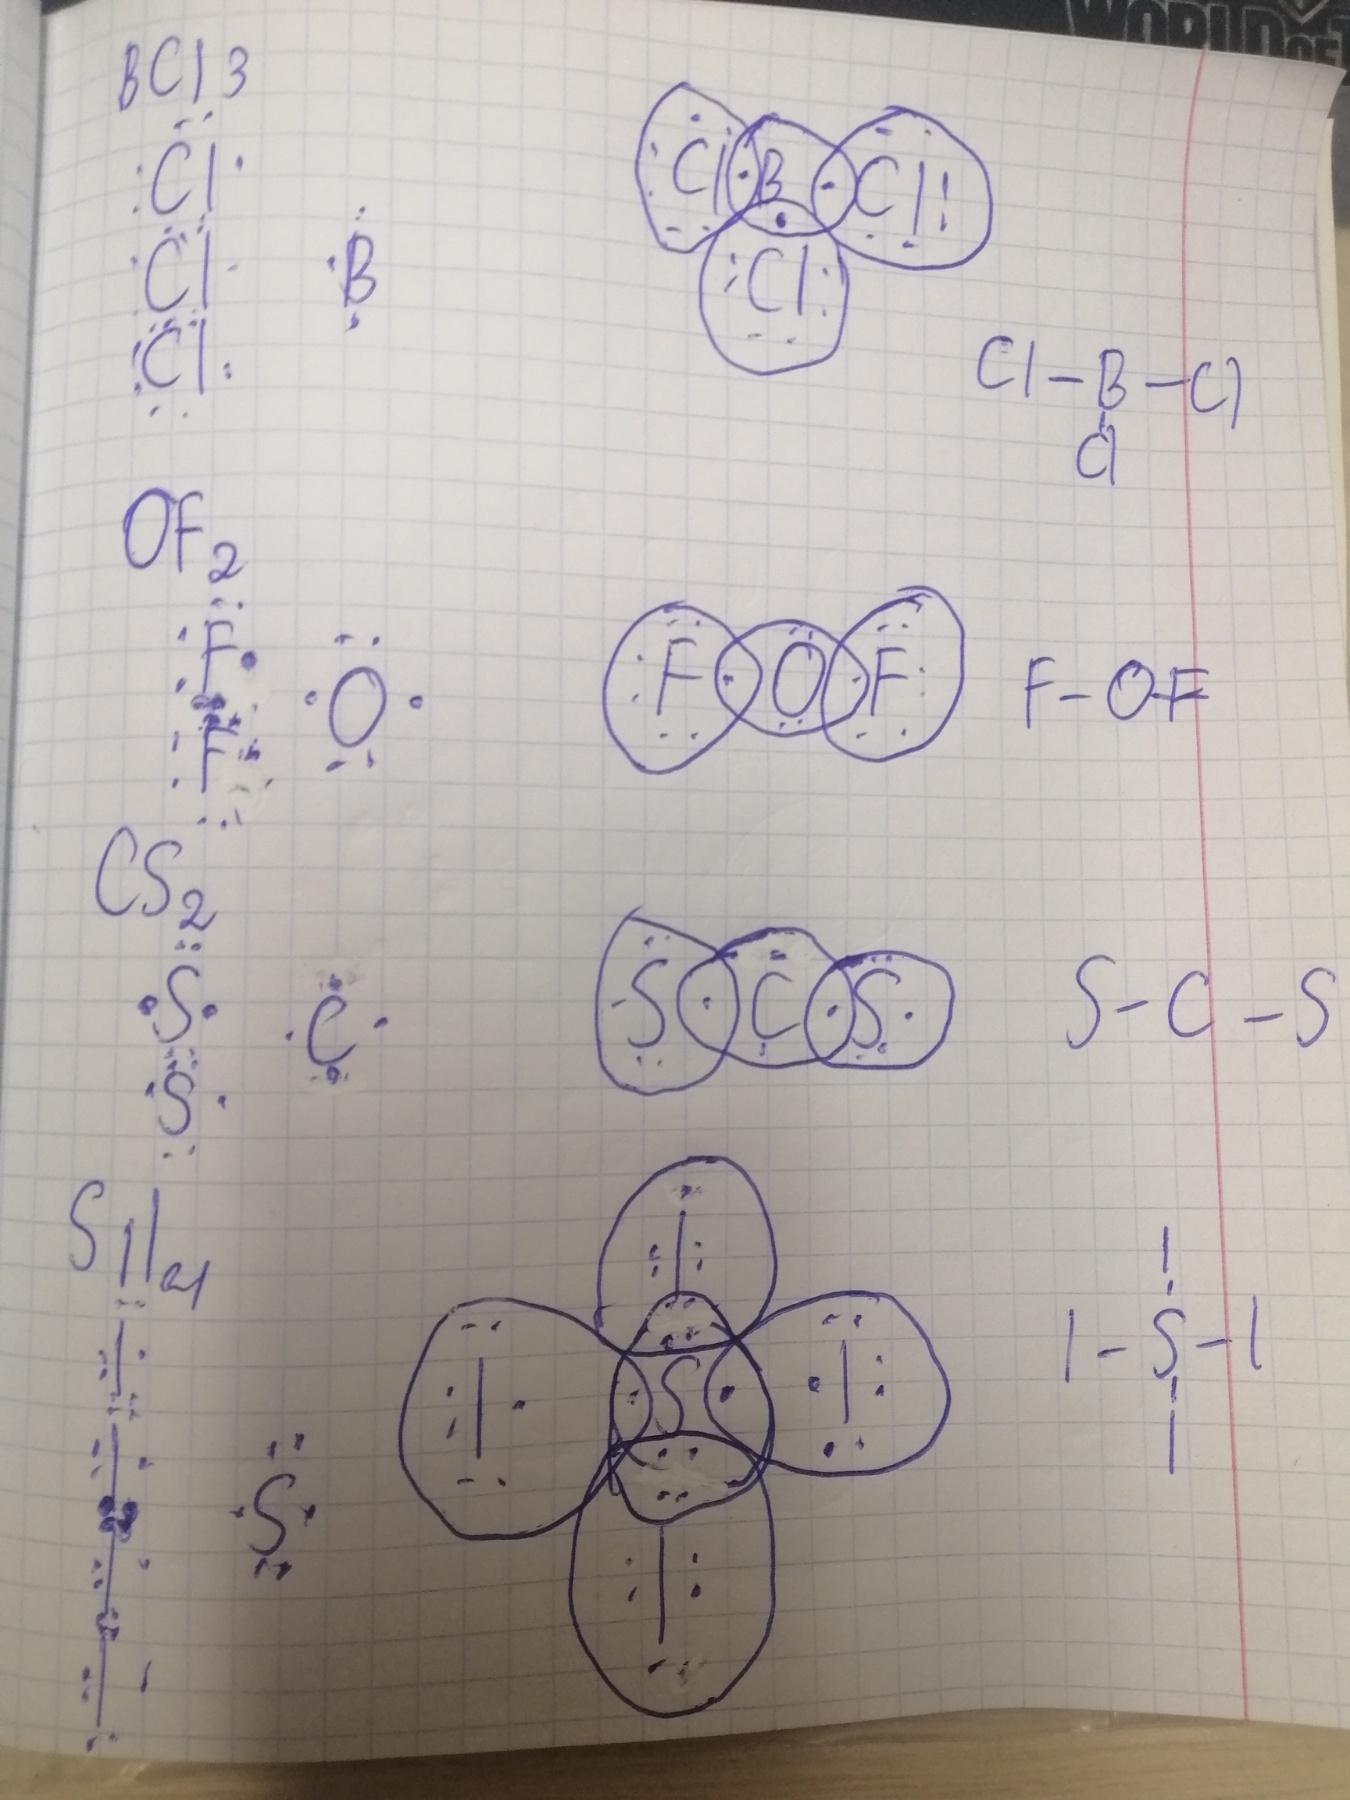 WORLD OF T
BCl3
Cl
Cl B
Cl
Cl B Cl
Cl
Cl-B-Cl
Cl
OF2
F
F
O
F O F
F-O-F
CS2
S
S
C
S C S
S-C-S
SiI4
I
I
I
I
S
I
I S I
I
I
I-S-I
I